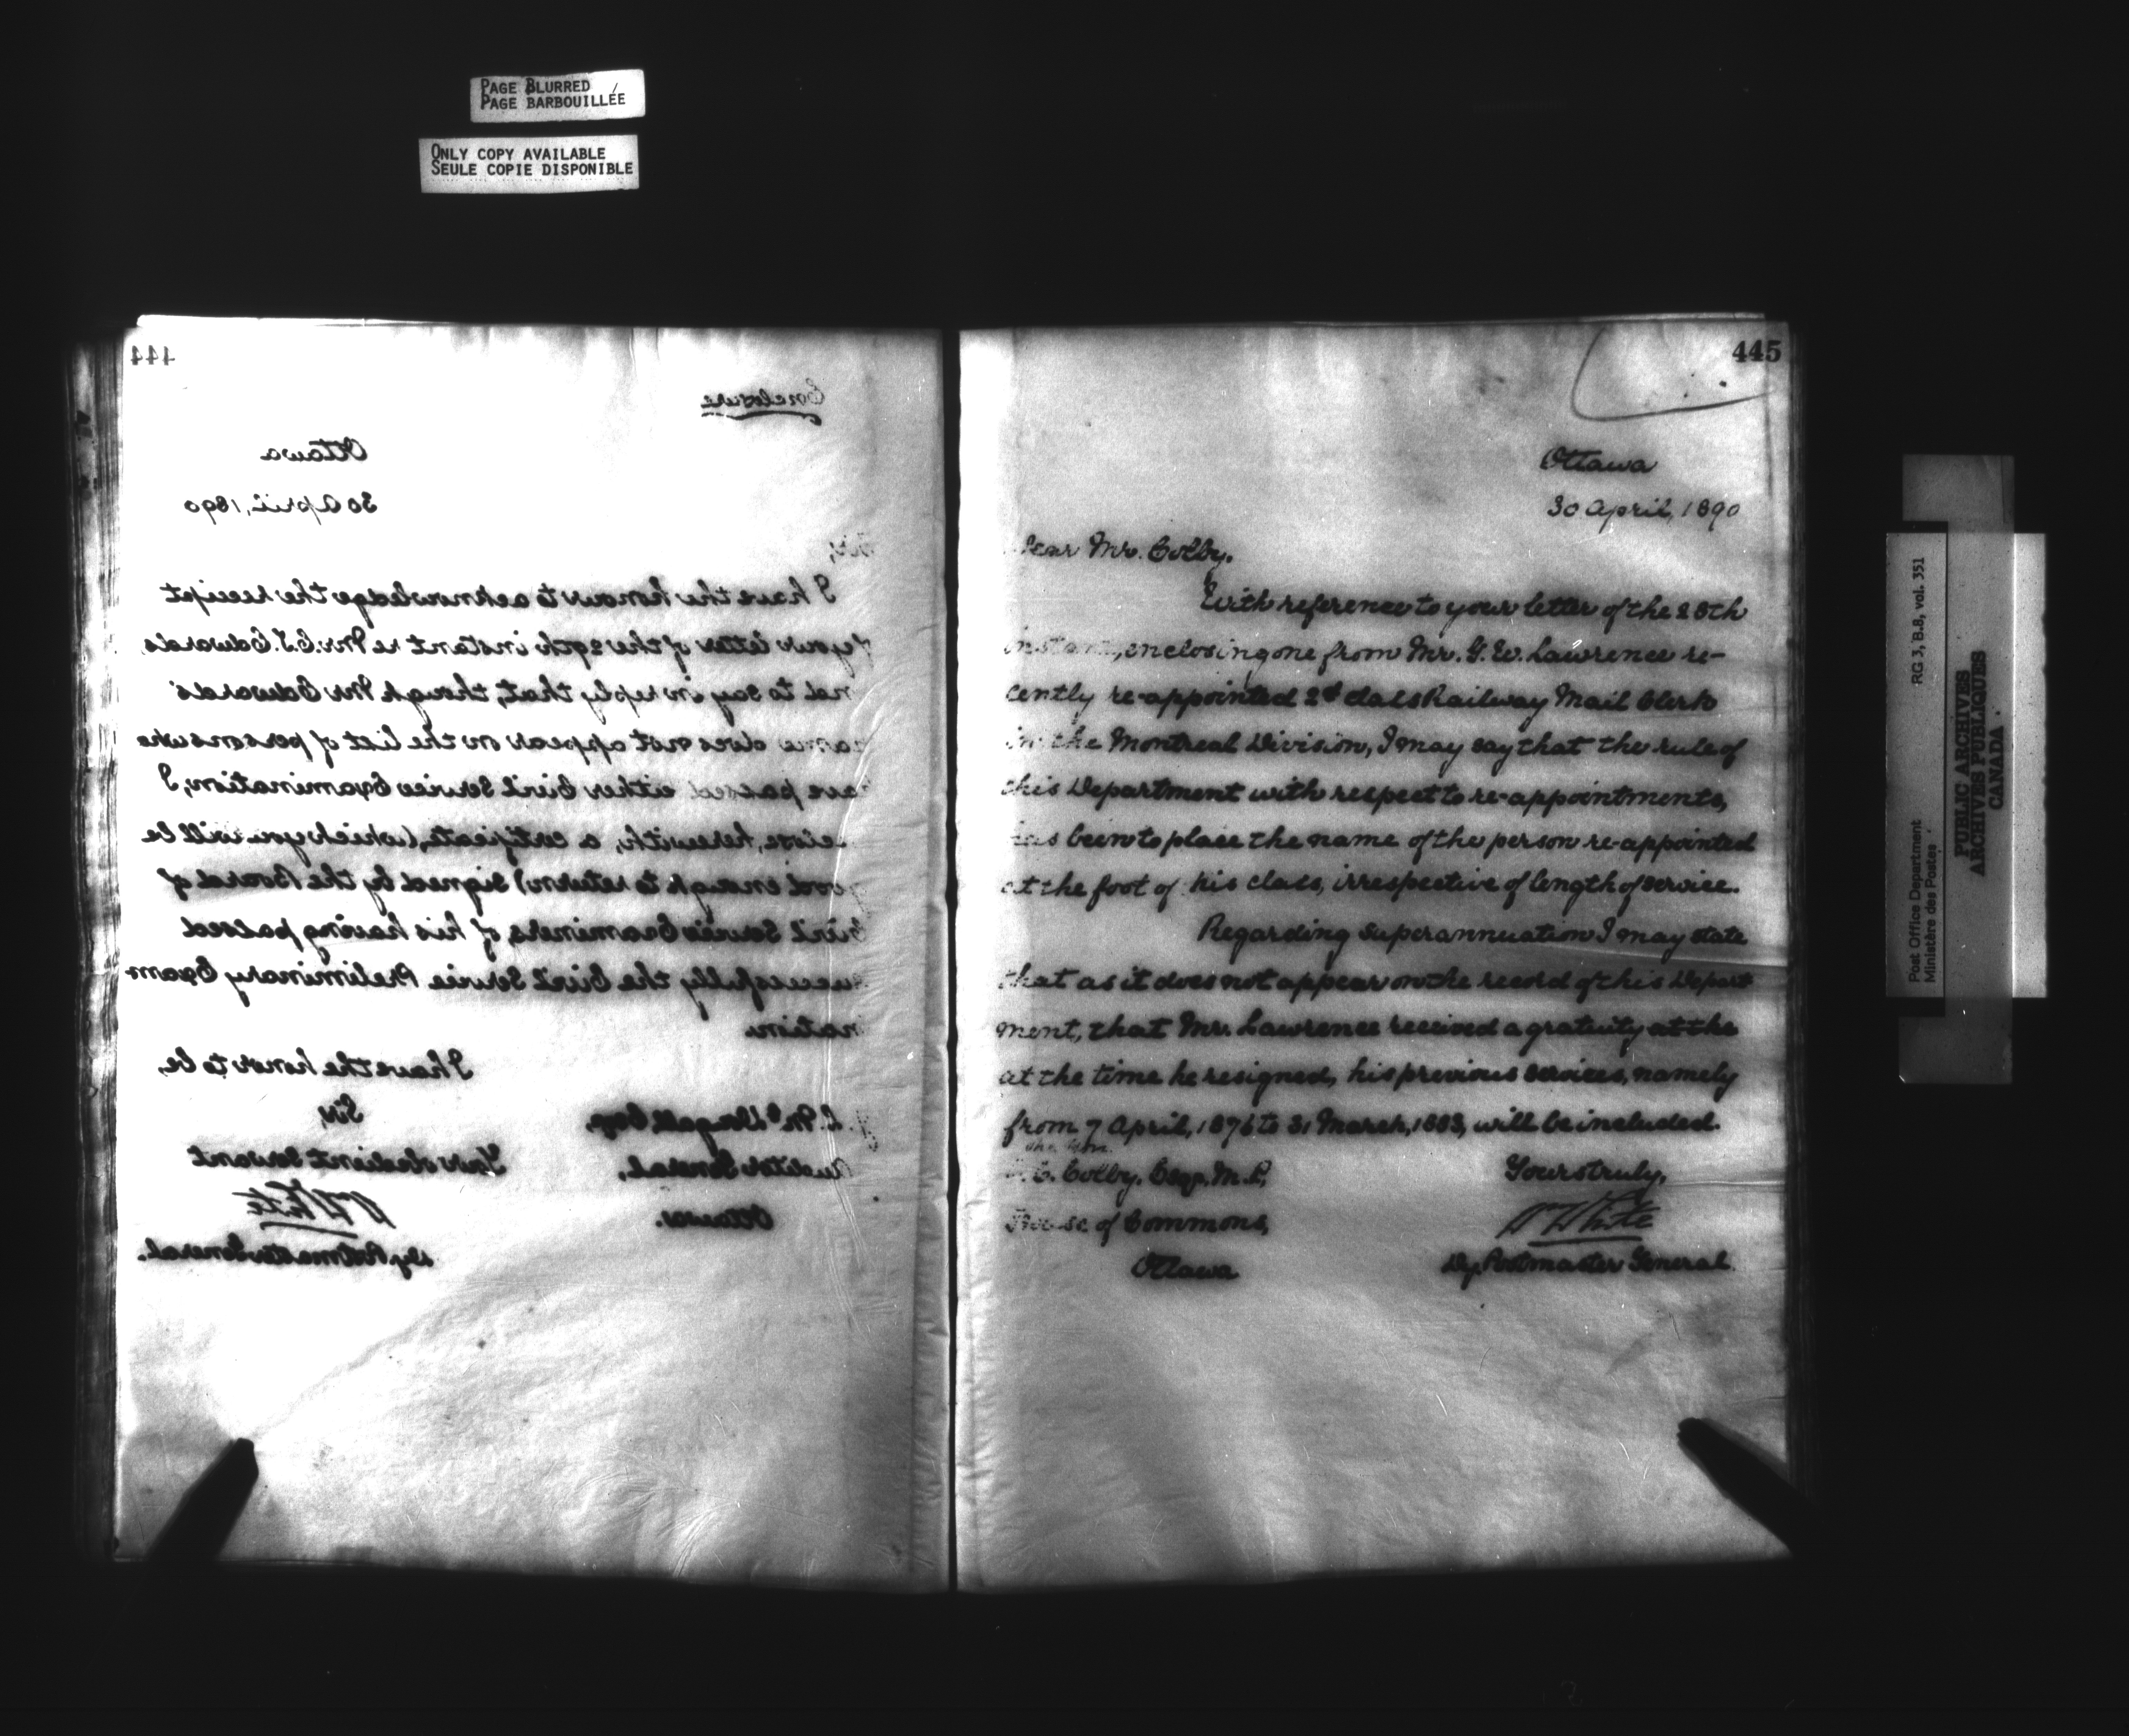 PAGE BLURRED
PAGE BARBOUILLÉE
ONLY COPY AVAILABLE
SEULE COPIE DISPONIBLE
444
Enclosure
Ottawa
30 April, 1890
Sir,
I have the honour to acknowledge the receipt
of your letter of the 29th instant re Mr. C.J. Edwards
and to say in reply that, though Mr Edwards'
name does not appear on the list of persons who
have passed either Civil Service Examination, I,
enclose, herewith, a certificate, (which you will be
good enough to return) signed by the Board of
Civil Service Examiners, of his having passed
successfully the Civil Service Preliminary Exam-
ination.
I have the honor to be,
Sir,
Your obedient servant
W White
Dy. Postmaster General.
J. L. McDougall, Esq.,
Auditor General,
Ottawa.
445
Ottawa
30 April, 1890
Dear Mr. Colby.
With reference to your letter of the 28th
instant, enclosing one from Mr. G. W. Lawrence re-
cently re-appointed 2d class Railway Mail Clerk
in the Montreal Division, I may say that the rule of
this Department with respect to re-appointments,
has been to place the name of the person re-appointed
at the foot of his class, irrespective of length of service.
Regarding superannuation I may state
that as it does not appear on the record of this Depart
ment, that Mr. Lawrence received a gratuity at the
at the time he resigned, his previous services, namely
from 7 April, 1876 to 31 March, 1883, will be included.
Yours truly,
W White
Dy. Postmaster General
The Hon.
C. C. Colby. Esqr. M.P.,
House of Commons,
Ottawa
Post Office Department
Ministère des Postes
RG 3, B.8, vol. 351
PUBLIC ARCHIVES
ARCHIVES PUBLIQUES
CANADA